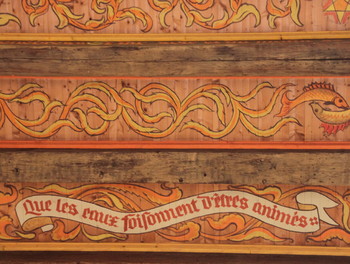 Que les eaux foisonnent d'êtres animés::